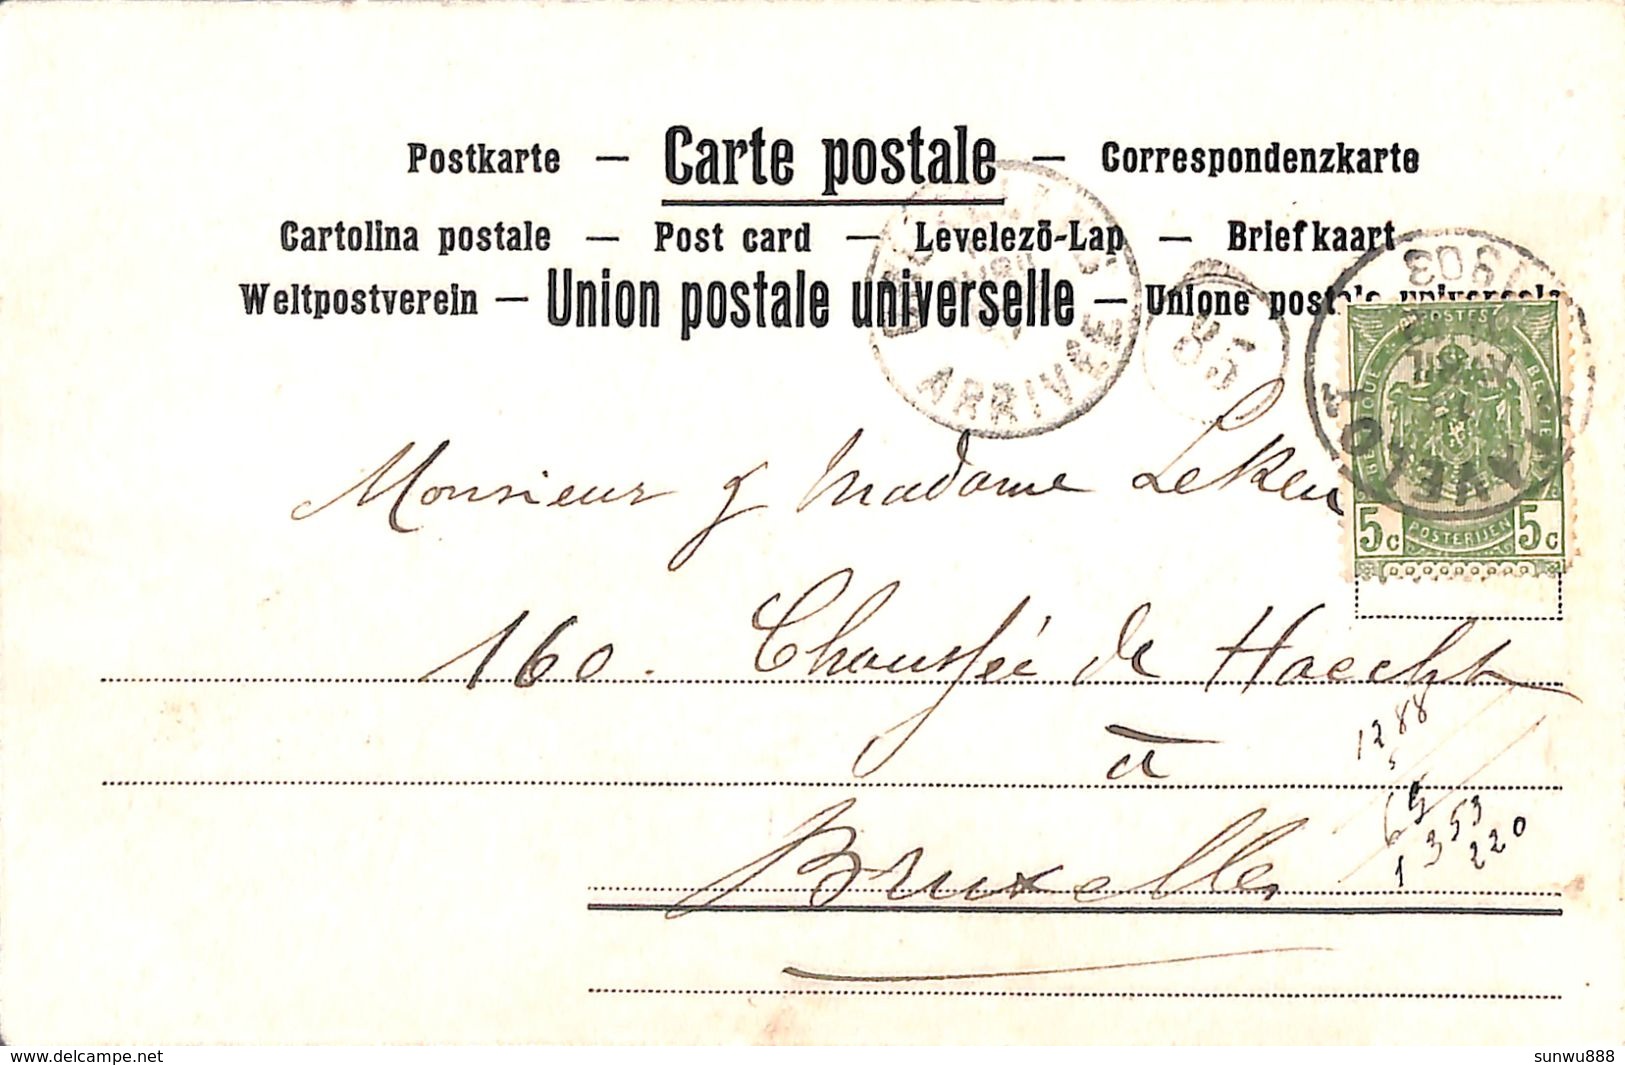 Postkarte — Carte postale — Correspondenzkarte
Cartolina postale — Post card — Levelező-Lap — Briefkaart
Weltpostverein — Union postale universelle — Unione postale universale
ARRIVÉE
85
1903
TAVELOT
POSTES
BELGIQUE BELGIE
5c POSTERIJEN 5c
Monsieur & Madame Lekeu
160. Chaussée de Haecht
à
Bruxelles
1288
5
69
1353
220
delcampe.net
sunwu888